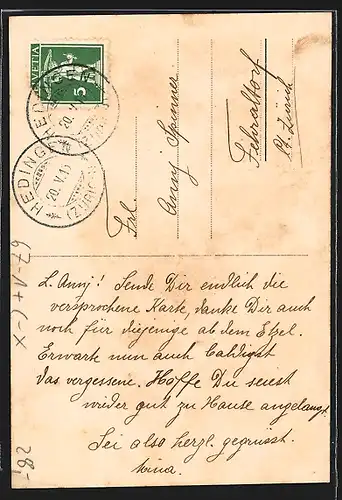 HELVETIA
5
HEDINGEN
20. V. 1
(ZÜRICH)
Frl.
Anny Spinner
Fehraltdorf
Kt. Zürich
L. Anny! Sende Dir endlich die
versprochene Karte, danke Dir auch
noch für diejenige ab dem Etzel.
Erwarte nun auch baldigst
das vergessene. Hoffe Du seiest
wider gut zu Hause angelangt.
Sei also herzl. gegrüsst.
28,-